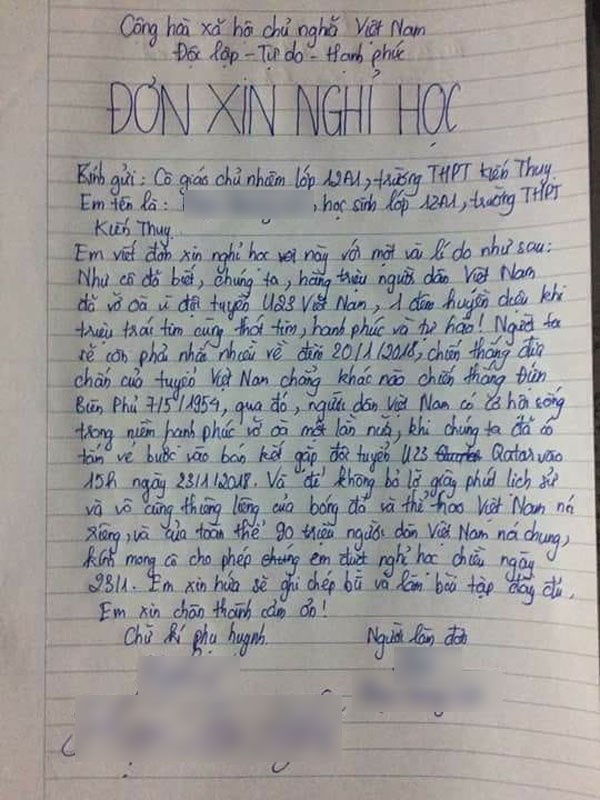 Cộng hoà xã hội chủ nghĩa Việt Nam
Độc lập - Tự do - Hạnh phúc
ĐƠN XIN NGHỈ HỌC
Kính gửi: Cô giáo chủ nhiệm lớp 12A1, trường THPT Kiến Thuỵ.
Em tên là: , học sinh lớp 12A1, trường THPT
Kiến Thuỵ.
Em viết đơn xin nghỉ học này với một vài lí do như sau:
Như cô đã biết, chúng ta, hàng triệu người dân Việt Nam
đã vỡ oà vì đội tuyển U23 Việt Nam, 1 đêm huyền diệu khi
triệu trái tim cùng thót tim, hạnh phúc và tự hào! Người ta
sẽ còn phải nhắc nhiều về đêm 20/1/2018, chiến thắng địa
chấn của tuyển Việt Nam chẳng khác nào chiến thắng Điện
Biên Phủ 7/5/1954, qua đó, người dân Việt Nam có cơ hội sống
trong niềm hạnh phúc vỡ oà một lần nữa, khi chúng ta đã có
tấm vé bước vào bán kết gặp đội tuyển U23 Qatar vào
15h ngày 23/1/2018. Và để không bỏ lỡ giây phút lịch sử
và vô cùng thiêng liêng của bóng đá và thể thao Việt Nam nói
riêng, và của toàn thể 90 triệu người dân Việt Nam nói chung,
kính mong cô cho phép chúng em được nghỉ học chiều ngày
23/1. Em xin hứa sẽ ghi chép bù và làm bài tập đầy đủ.
Em xin chân thành cảm ơn!
Chữ kí phụ huynh Người làm đơn